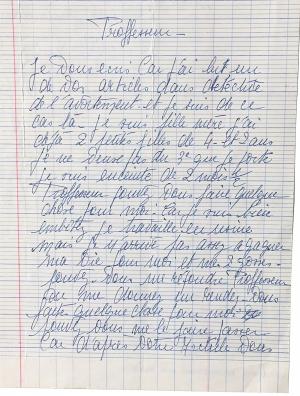 Proffesseur
Je vous ecris Car j'ai lut un
de vos articles dans detective
de l'avortement et je suis de ce
cas là je suis fille mère j'ai
déjà 2 petites filles de 4 et 2 ans
je ne veux pas du 3e que je porte
je suis enceinte de 2 mois
Proffesseur pouvez vous faire quelque
chose pour moi. Car je suis bien
embêtée je travaille en usine
mais je n'arrive pas assez a gagner
ma vie pour moi et mes 2 gosses
pouvez vous me repondre Proffesseur
ou me donner un rendez-vous
faire quelque chose pour moi
pouvez vous me le faire passer
Car d'après votre article vous